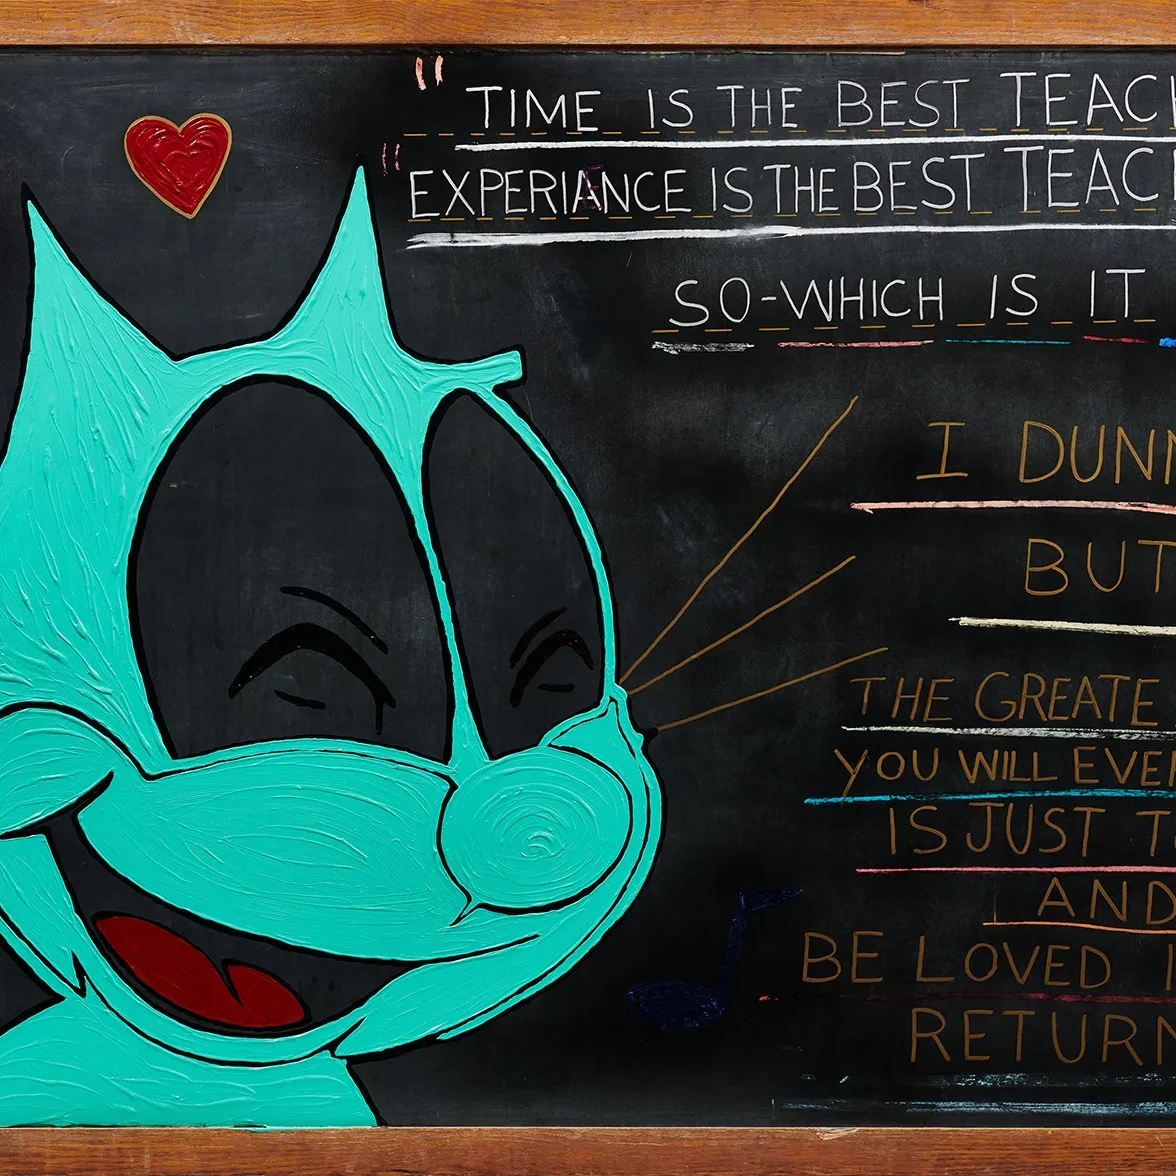 "TIME IS THE BEST TEAC
"EXPERIANCE IS THE BEST TEAC
SO-WHICH IS IT
I DUNN
BUT
THE GREATE
YOU WILL EVER
IS JUST T
AND
BE LOVED I
RETURN